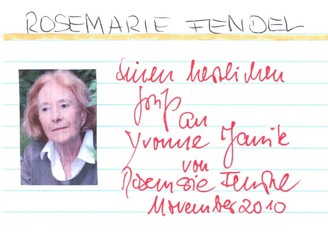 ROSEMARIE FENDEL
Einen herzlichen
Gruß
an
Yvonne Janik
von
Rosemarie Fendel
November 2010